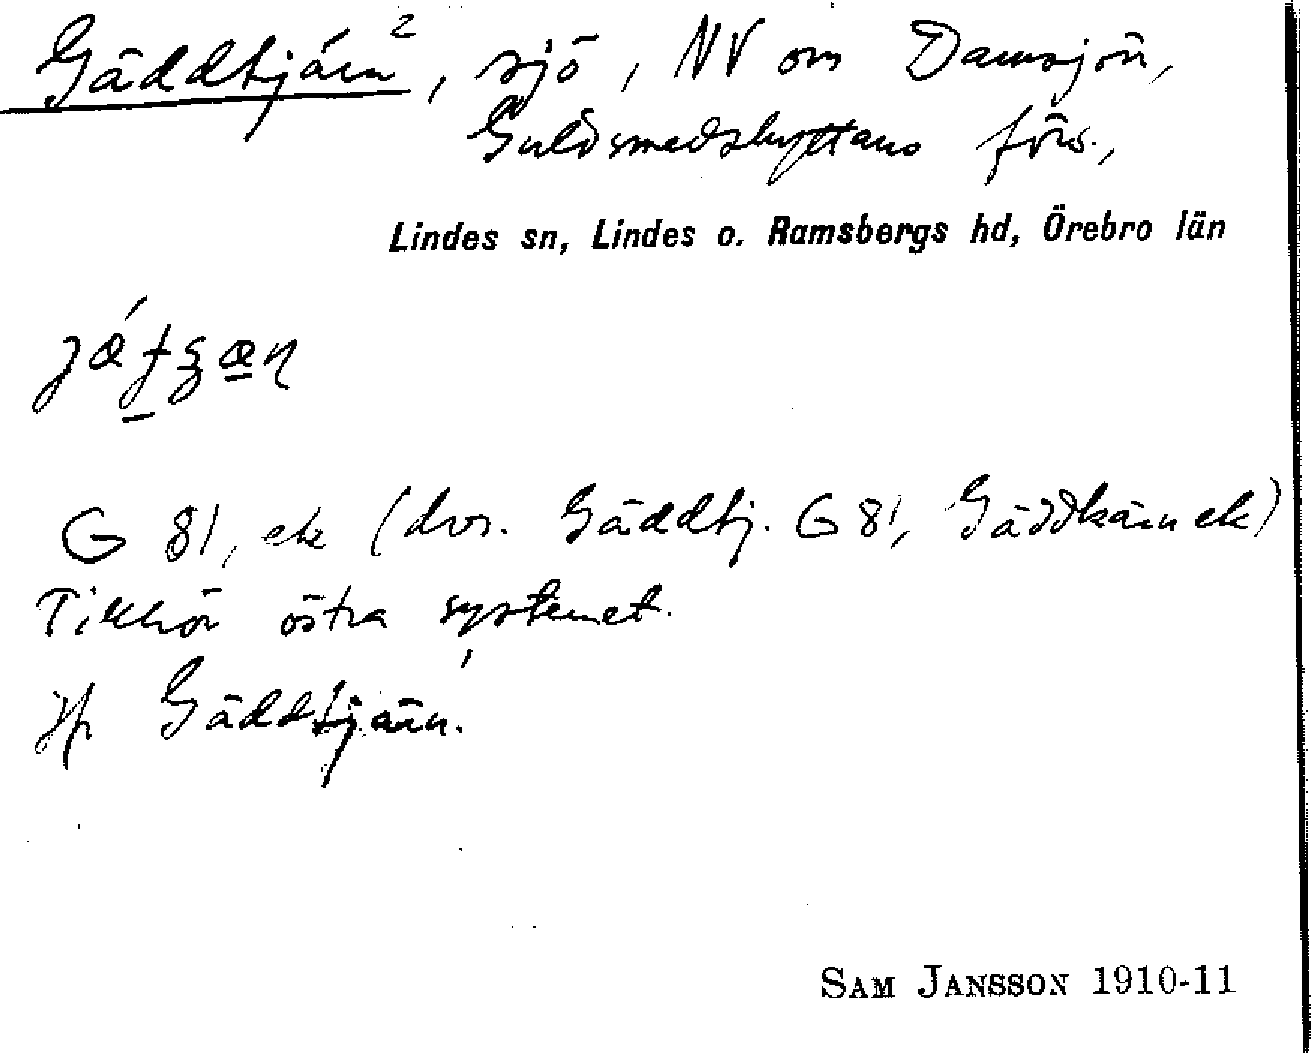 Gäddtjärn², sjö, NV om Damsjön,
Guldsmedshyttans förs.,
Lindes sn, Lindes o. Ramsbergs hd, Örebro län
G 81, ek (dvs. Gäddtj. G 81, Gäddkärn ek)
Tillhör östra systemet.
Jfr Gäddtjärn.
SAM JANSSON 1910-11